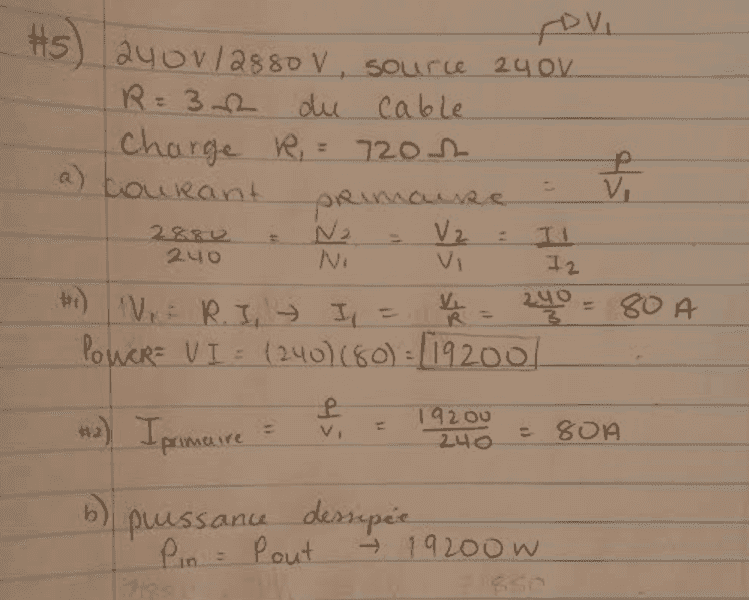 → V₁
#5) 240V/2880V, source 240V
R = 3Ω du cable
Charge R₁ = 720Ω
a) courant primaire = P/V₁
2880/240 = N₂/N₁ = V₂/V₁ = I1/I2
#1) V₁ = R.I₁ → I₁ = V₁/R = 240/3 = 80 A
Power = VI = (240)(80) = 19200
#2) I primaire = P/V₁ = 19200/240 = 80A
b) puissance dessipée
Pin = Pout → 19200W